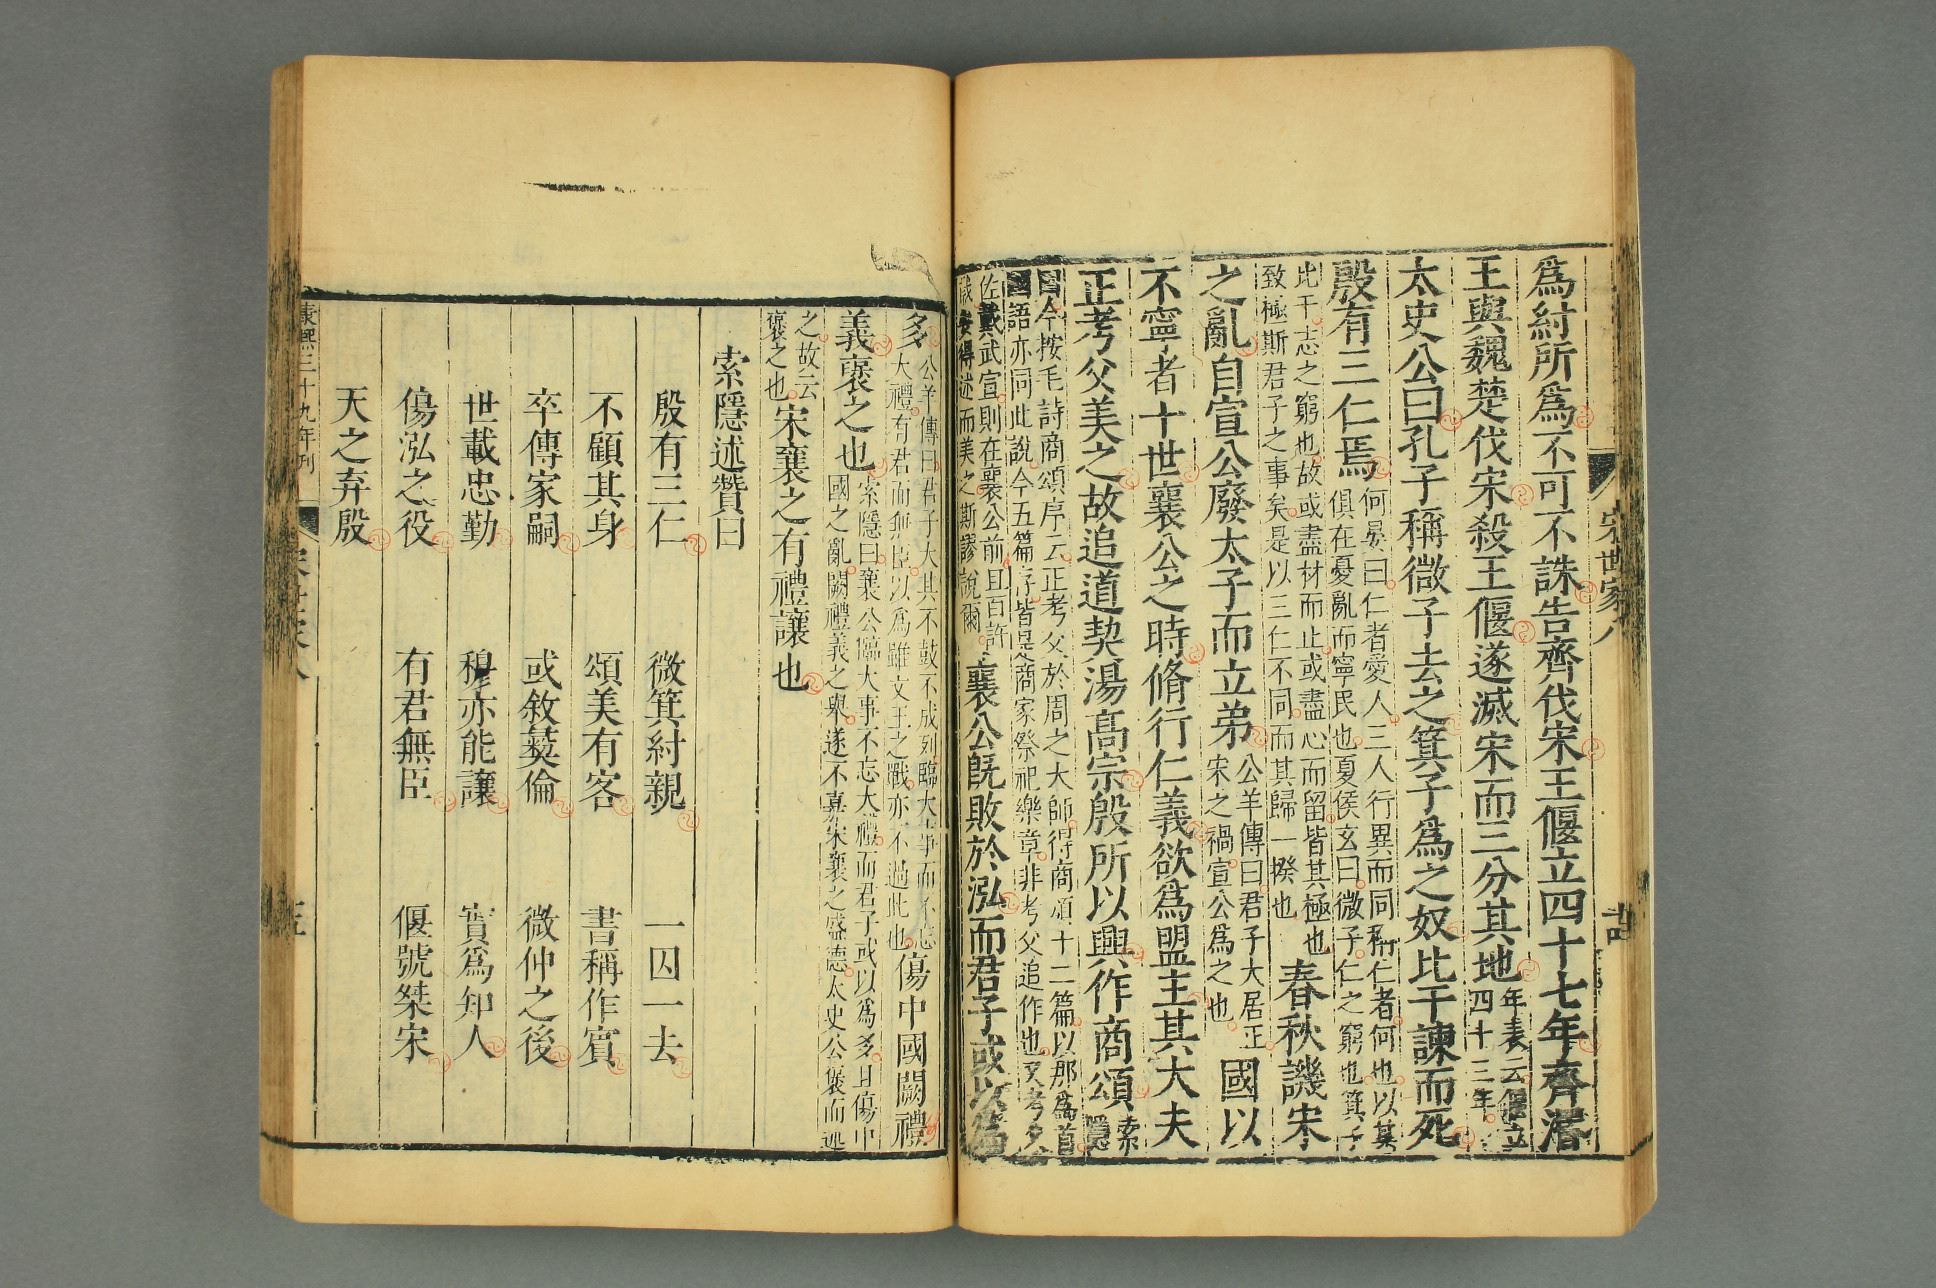 爲紂所爲不可不誅告齊伐宋王偃立四十七年齊湣
王與魏楚伐宋殺王偃遂滅宋而三分其地年表云偃立四十三年
太史公曰孔子稱微子去之箕子爲之奴比干諫而死
殷有三仁焉何晏曰仁者愛人三人行異而同稱仁者何也以其
俱在憂亂而寧民也夏侯玄曰微子仁之窮也箕子
比干志之窮也故或盡材而止或盡心而留皆其極也
致極斯君子之事矣是以三仁不同而其歸一揆也春秋譏宋
之亂自宣公廢太子而立弟公羊傳曰君子大居正宋之禍宣公爲之也國以
不寧者十世襄公之時脩行仁義欲爲盟主其大夫
正考父美之故追道契湯高宗殷所以興作商頌索隱
曰今按毛詩商頌序云正考父於周之大師得商頌十二篇以那爲首
國語亦同此說今五篇存皆是商家祭祀樂章非考父追作也又考父
佐戴武宣則在襄公前且百許
歲安得述而美之斯謬說爾襄公既敗於泓而君子或以爲
多公羊傳曰君子大其不鼓不成列臨大事而不忘
大禮有君而無臣以爲雖文王之戰亦不過此也傷中國闕禮
義褒之也索隱曰襄公臨大事不忘大禮而君子或以爲多且傷中
國之亂闕禮義之舉遂不嘉宋襄之盛德太史公襃而述
之故云襃之也宋襄之有禮讓也
索隱述贊曰
殷有三仁 微箕紂親 一囚一去
不顧其身 頌美有客 書稱作賓
卒傳家嗣 或敘彝倫 微仲之後
世載忠勤 穆亦能讓 實爲知人
傷泓之役 有君無臣 偃號桀宋
天之弃殷
康熙三十九年刊
宋世家八